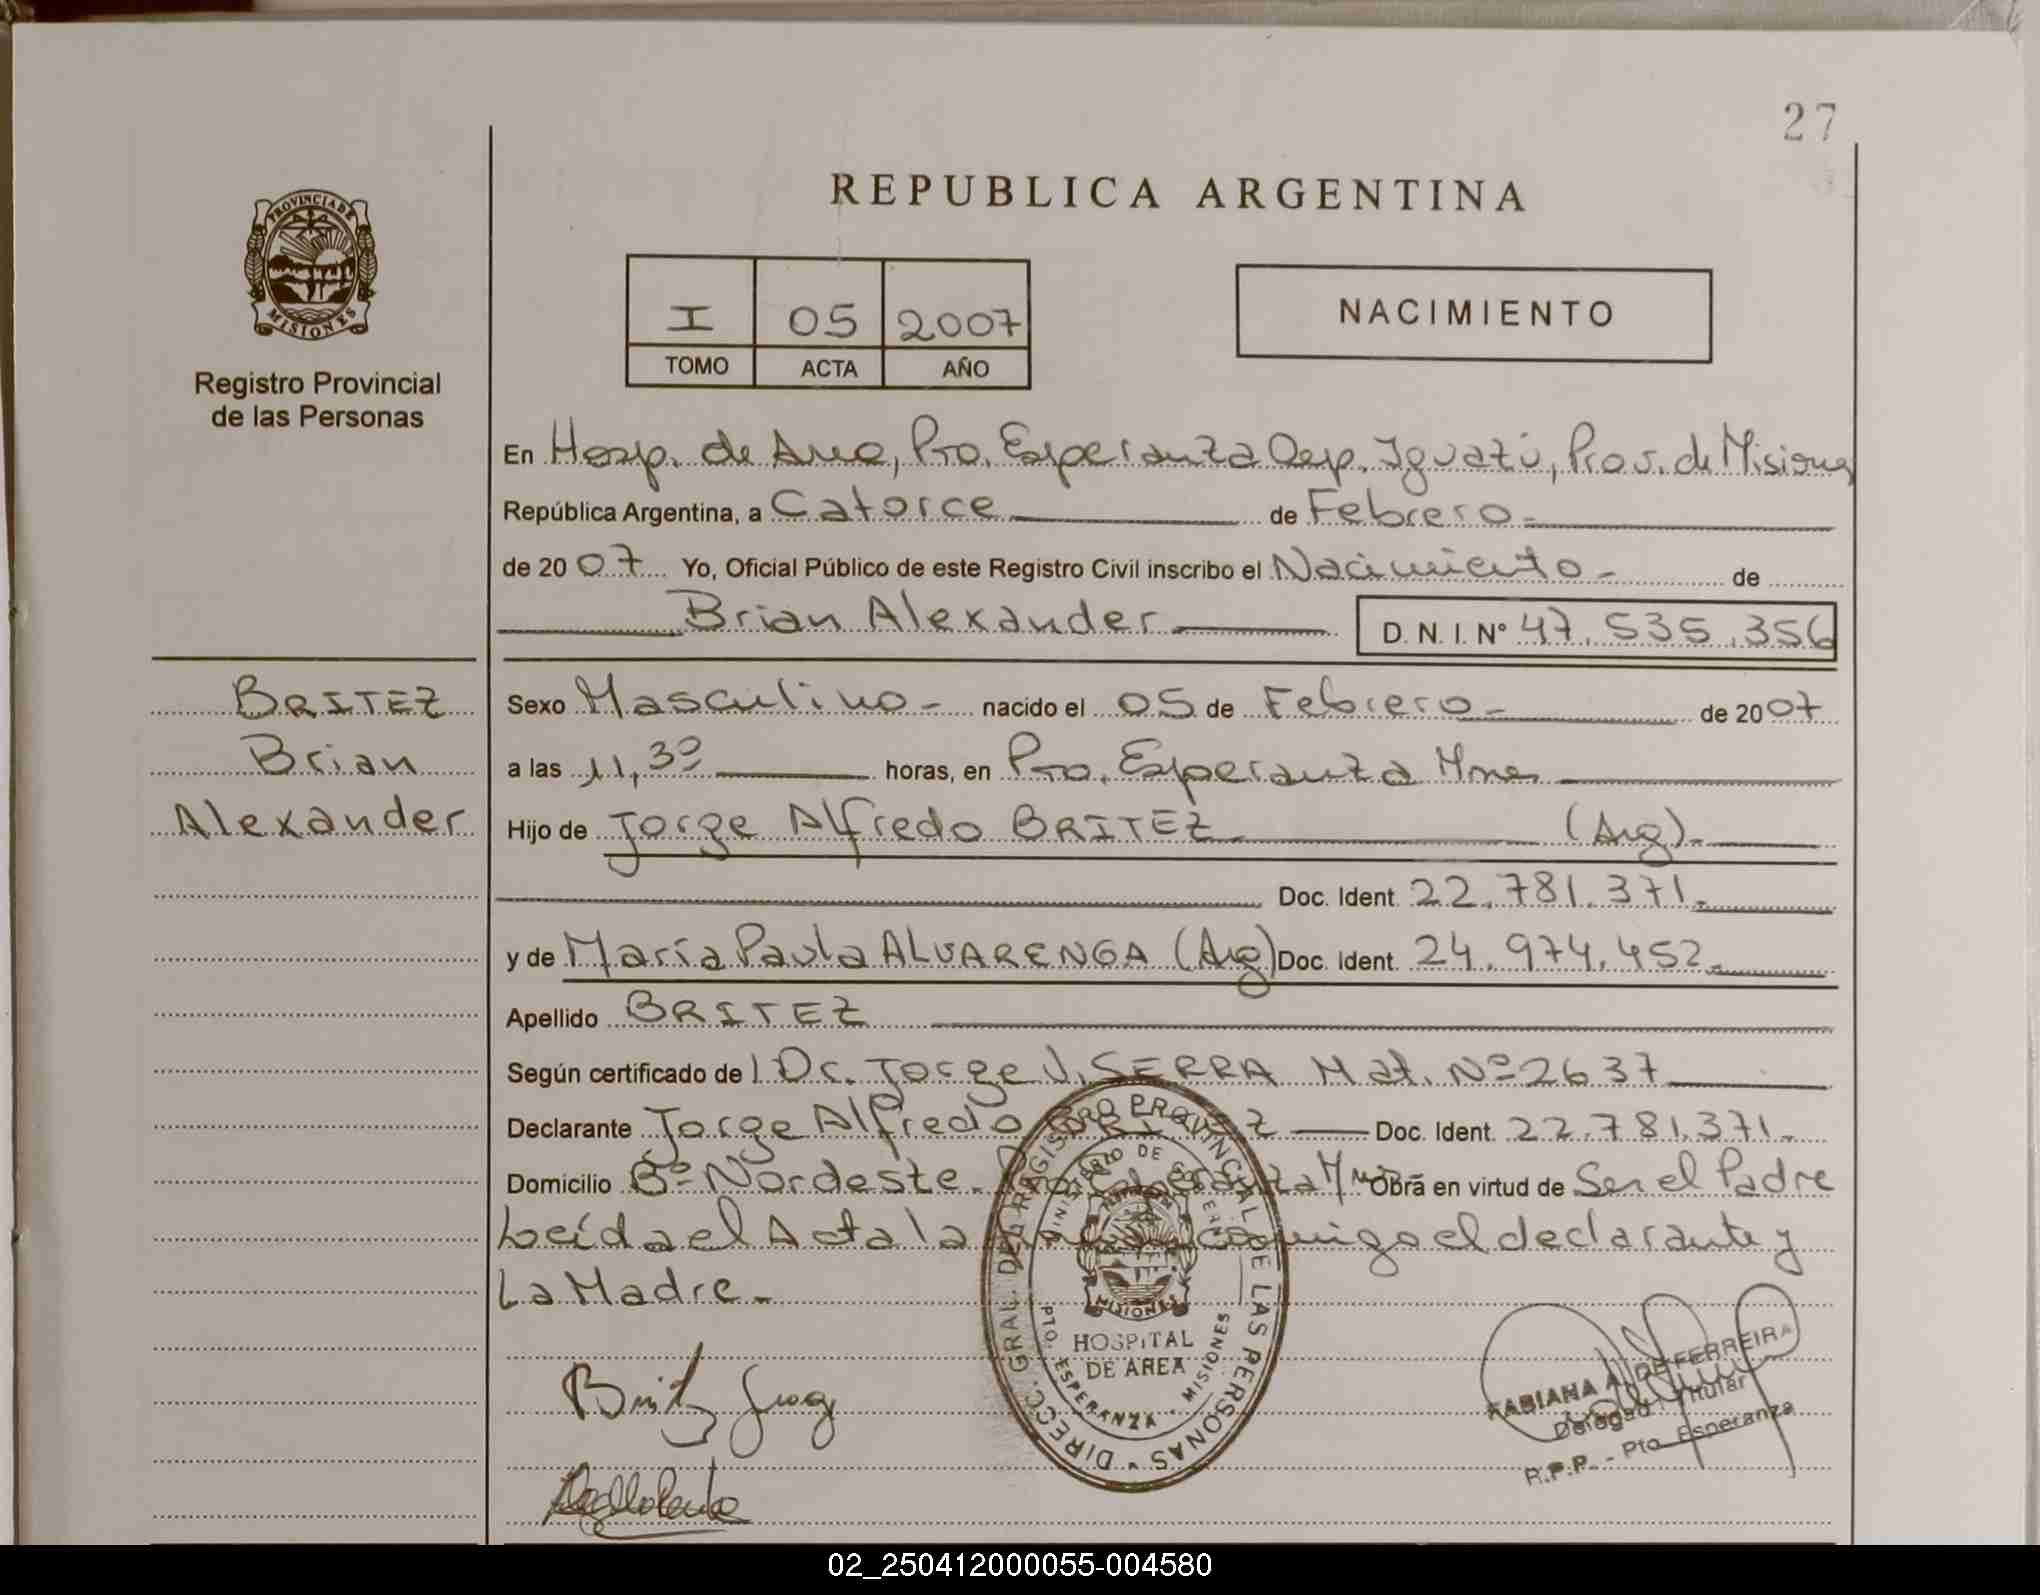 27
REPUBLICA ARGENTINA
PROVINCIA DE
MISIONES
Registro Provincial
de las Personas
I 05 2007
TOMO ACTA AÑO
NACIMIENTO
En Hosp. de Area, Pto. Esperanza Dep. Iguazú, Prov. de Misiones
República Argentina, a Catorce de Febrero-
de 2007 Yo, Oficial Público de este Registro Civil inscribo el Nacimiento- de
Brian Alexander D. N. I. Nº 47.535.356
BRITEZ
Brian
Alexander
Sexo Masculino- nacido el 05 de Febrero- de 2007
a las 11,30 horas, en Pto. Esperanza Mnes
Hijo de Jorge Alfredo BRITEZ (Arg).-
Doc. Ident. 22.781.371.-
y de María Paula ALVARENGA (Arg) Doc. Ident. 24.974.452.-
Apellido BRITEZ
Según certificado del Dr. Jorge J. SERRA Mat. Nº 2637
Declarante Jorge Alfredo BRITEZ Doc. Ident. 22.781.371.-
Domicilio Bº Nordeste. Pto. Esperanza Obra en virtud de Ser el Padre
Leída el Acta la conmigo el declarante y
La Madre.-
DIRECC. GRAL. DEL REGISTRO PROVINCIAL DE LAS PERSONAS
MINISTERIO DE GOBIERNO
MISIONES
HOSPITAL
DE AREA
PTO. ESPERANZA - MISIONES
Britez Jorge
FABIANA A. DE FERREIRA
Delegada Titular
R.P.P. - Pto. Esperanza
02_250412000055-004580